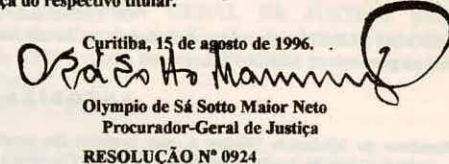 ça do respectivo titular.
Curitiba, 15 de agosto de 1996.
Olympio de Sá Sotto Maior Neto
Procurador-Geral de Justiça
RESOLUÇÃO Nº 0924